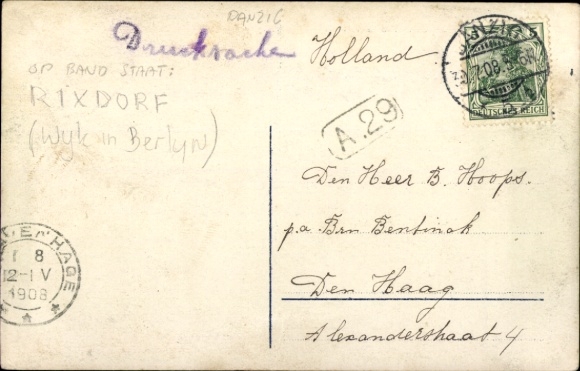 DANZIG
Drucksache
Holland
OP BAND STAAT:
RIXDORF
(Wyk in Berlyn)
A.29
DANZIG
5
DEUTSCHES REICH
Den Heer B. Hoops.
p.a. Brn Bentinck
Den Haag
Alexanderstraat 4
8
12-1 V
1908